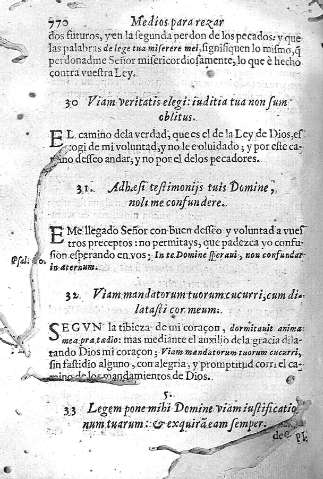 770 Medios para rezar
dos futuros, y en la segunda perdon de los pecados: y que
las palabras de lege tua miserere mei, signifiquen lo mismo, q̃
perdonadme Señor misericordiosamente, lo que è hecho
contra vuestra Ley.
30 Viam veritatis elegi: iuditia tua non sum
oblitus.
EL camino dela verdad, que es el de la Ley de Dios, es
cogi de mi voluntad, y no le e oluidado; y por este ca-
mino desseo andar, y no por el delos pecadores.
31. Adhæsi testimonijs tuis Domine,
noli me confundere.
E Me llegado Señor con buen desseo y voluntad a vues
tros preceptos: no permitays, que padezca yo confu-
Psal. 30. sion esperando en vos; In te Domine speraui, non confundar
in æternum.
32. Viam mandatorum tuorum cucurri, cum di-
latasti cor meum.
SEGVN la tibieza de mi coraçon, dormitauit anima
mea præ tædio: mas mediante el auxilio dela gracia dila-
tando Dios mi coraçon; Viam mandatorum tuorum cucurri,
sin fastidio alguno, con alegria, y promptitud corri el ca-
mino de los mandamientos de Dios.
5.
33 Legem pone mihi Domine viam iustificatio
num tuarum: & exquiram eam semper.